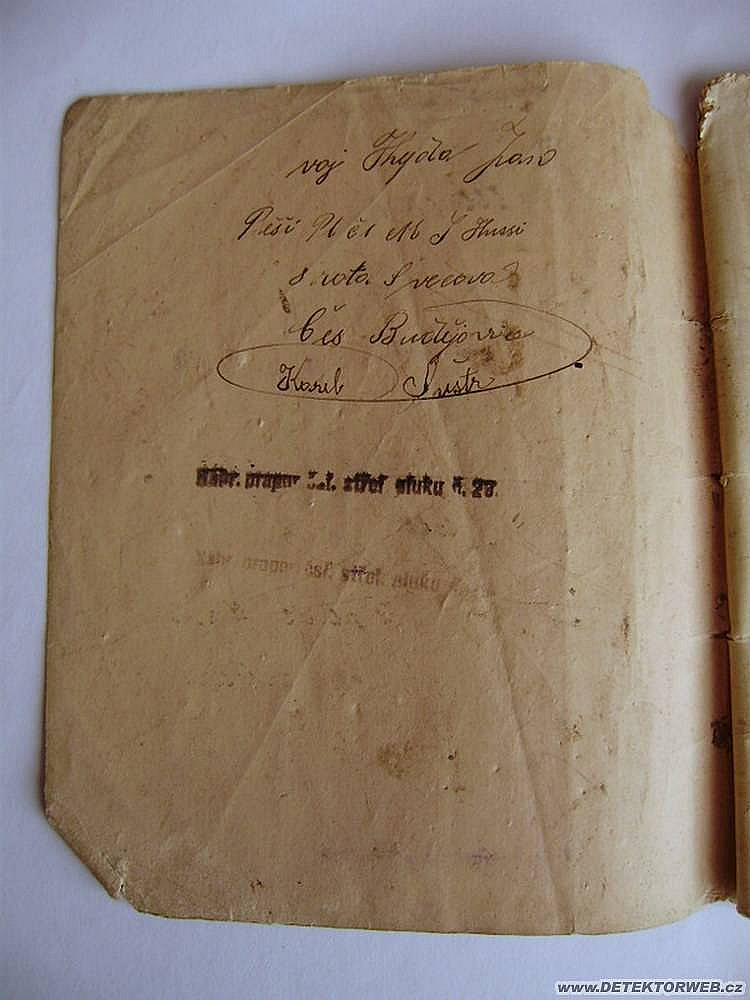 voj Jan
Pěší Pl čs M J Hussi
8 rota Švecova
Čěs Budějovice
Karel Šustr
Náhr. prapor čsl. střel pluku č. 28.
Náhr. prapor čsl. střel. pluku
www.DETEKTORWEB.cz